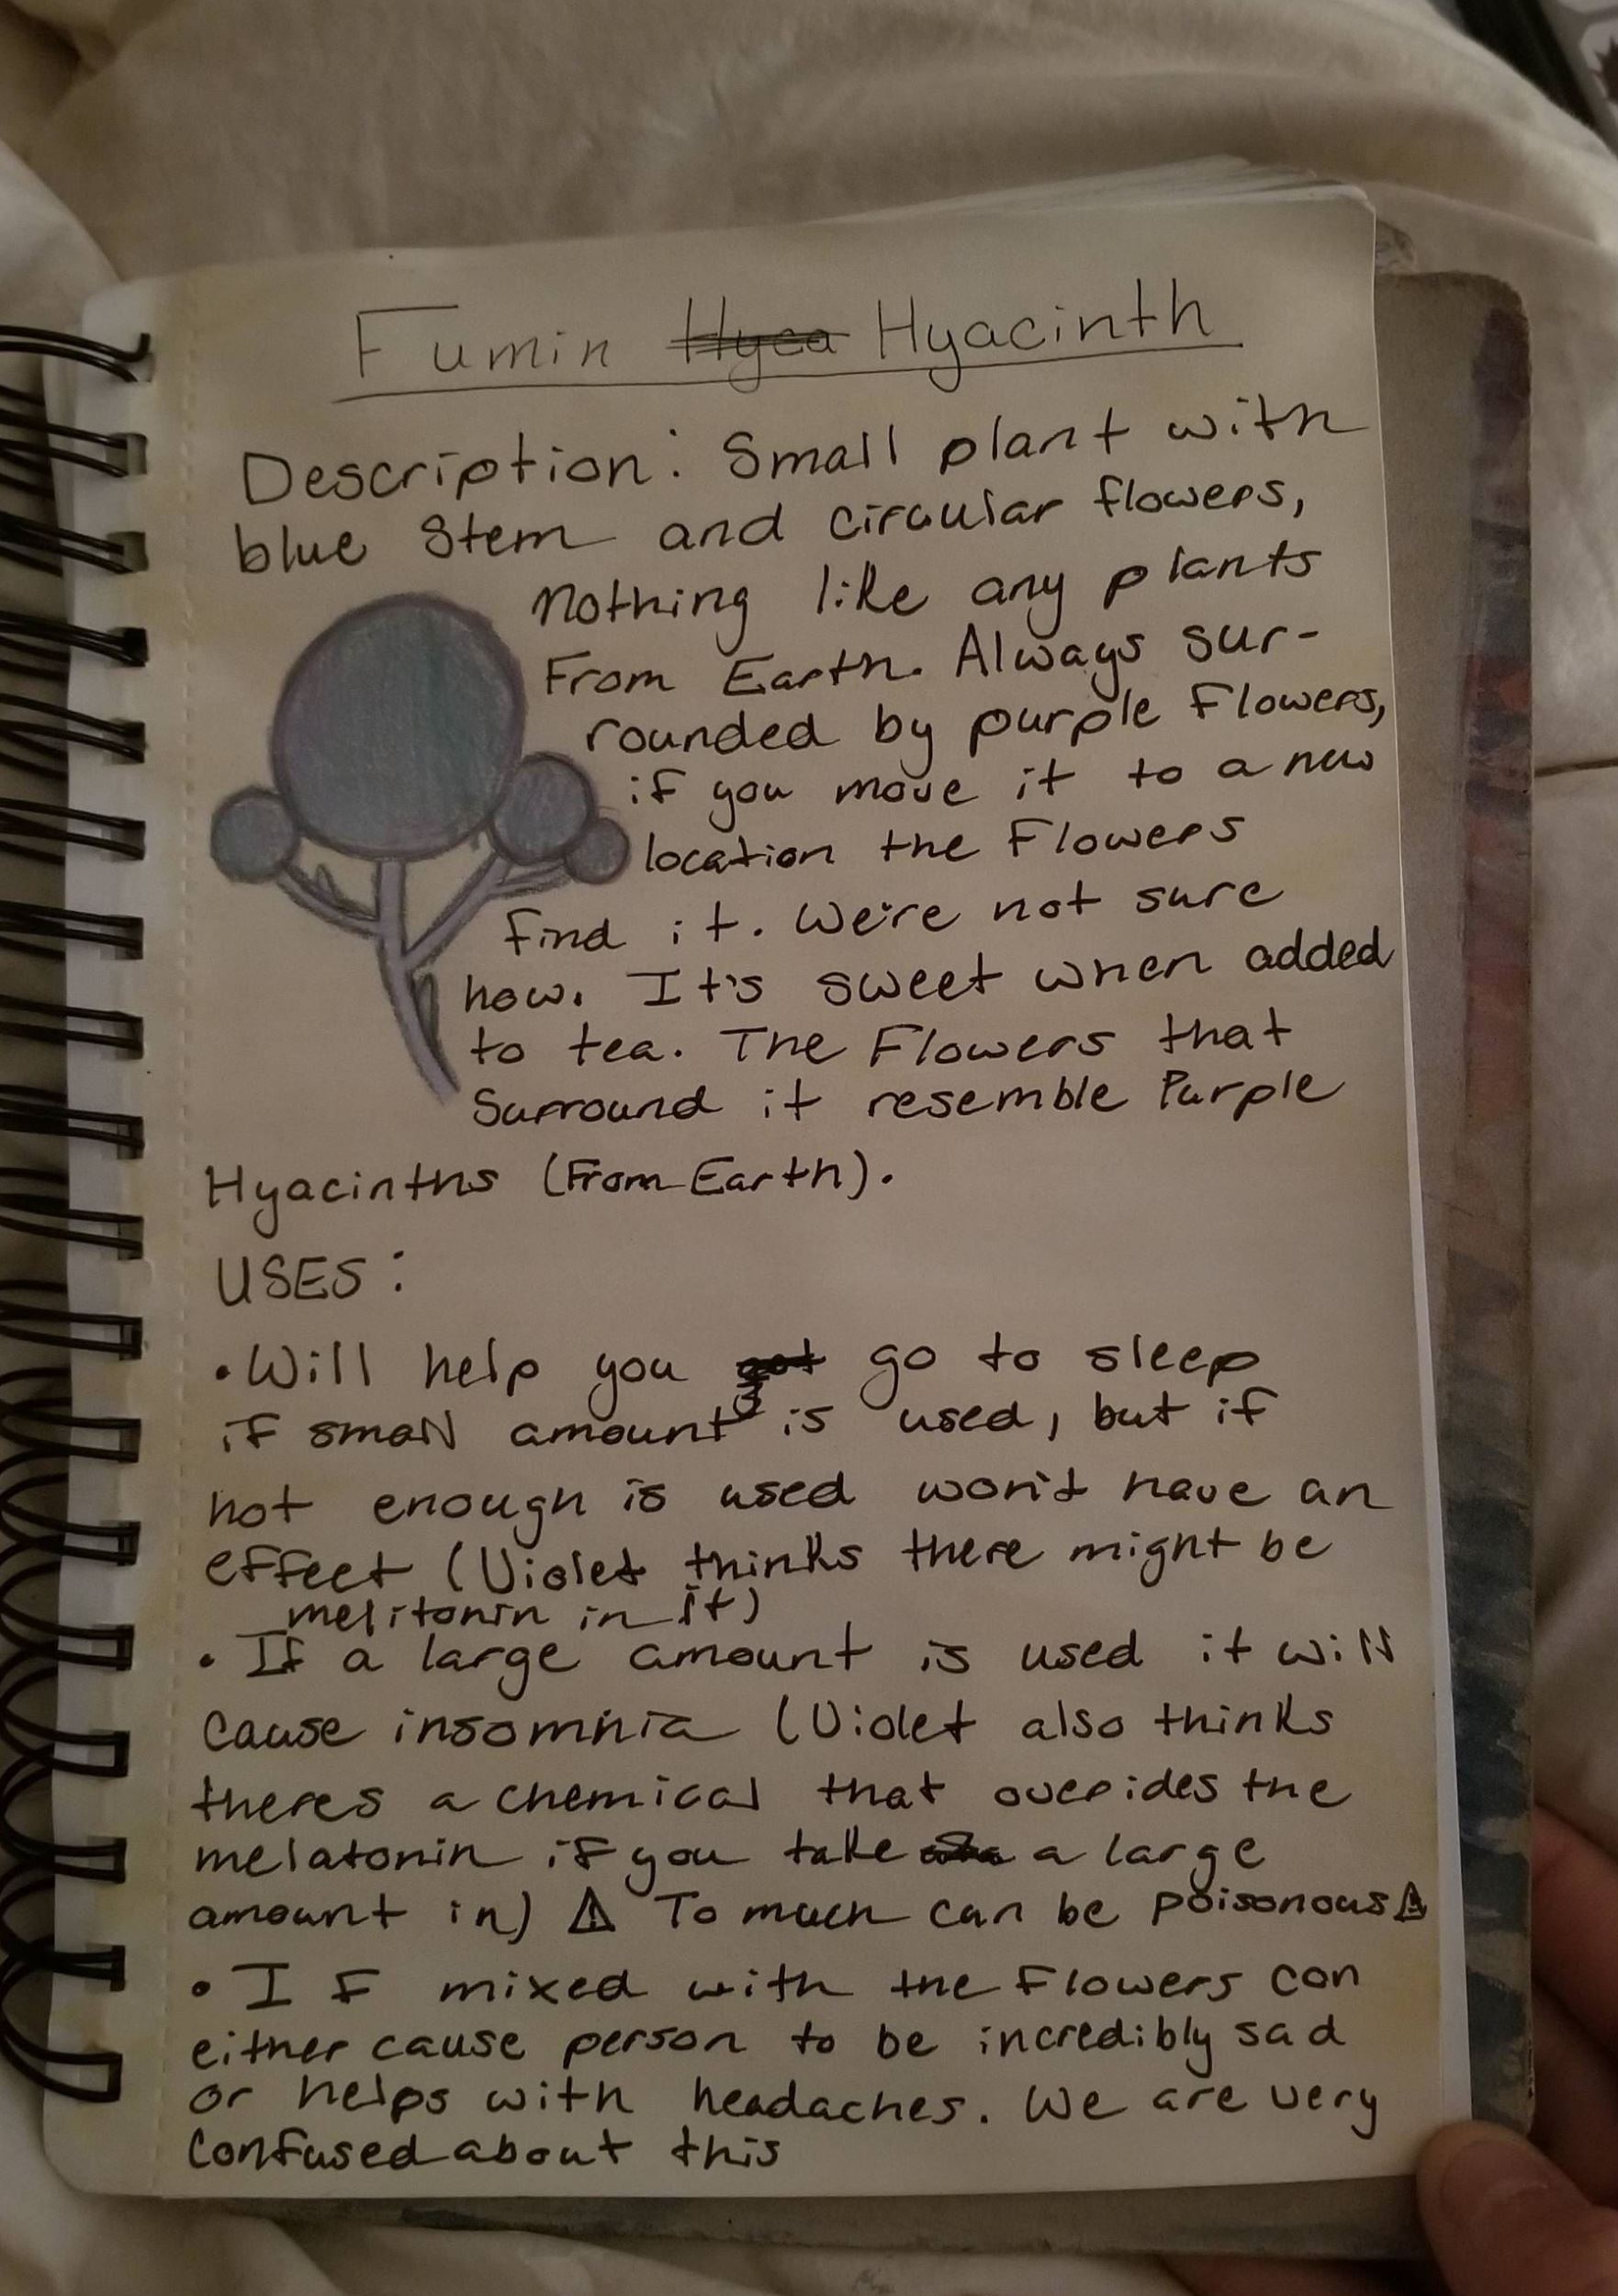 Fumin Hyca Hyacinth
Description: Small plant with
blue Stem and circular flowers,
nothing like any plants
From Earth. Always sur-
rounded by purple Flowers,
if you move it to a new
location the Flowers
find it. We're not sure
how. It's sweet when added
to tea. The Flowers that
Surround it resemble Purple
Hyacinths (From Earth).
USES:
• Will help you got go to sleep
if small amount is used, but if
not enough is used won't have an
effect (Violet thinks there might be
melitonin in it)
• If a large amount is used it will
cause insomnia (Violet also thinks
theres a chemical that overides the
melatonin if you take a large
amount in) ⚠ To much can be poisonous ⚠
• If mixed with the Flowers can
either cause person to be incredibly sad
or helps with headaches. We are very
confused about this